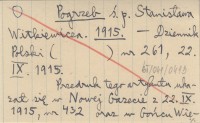 O Pogrzeb ś.p. Stanisława
Witkiewicza. 1915. — Dziennik
Polski ( ) nr 261, 22.
IX. 1915.
Przedruk tego artykułu uka-
zał się w Nowej Gazecie z 22. IX.
1915, nr 432 oraz w Gońcu Wie-